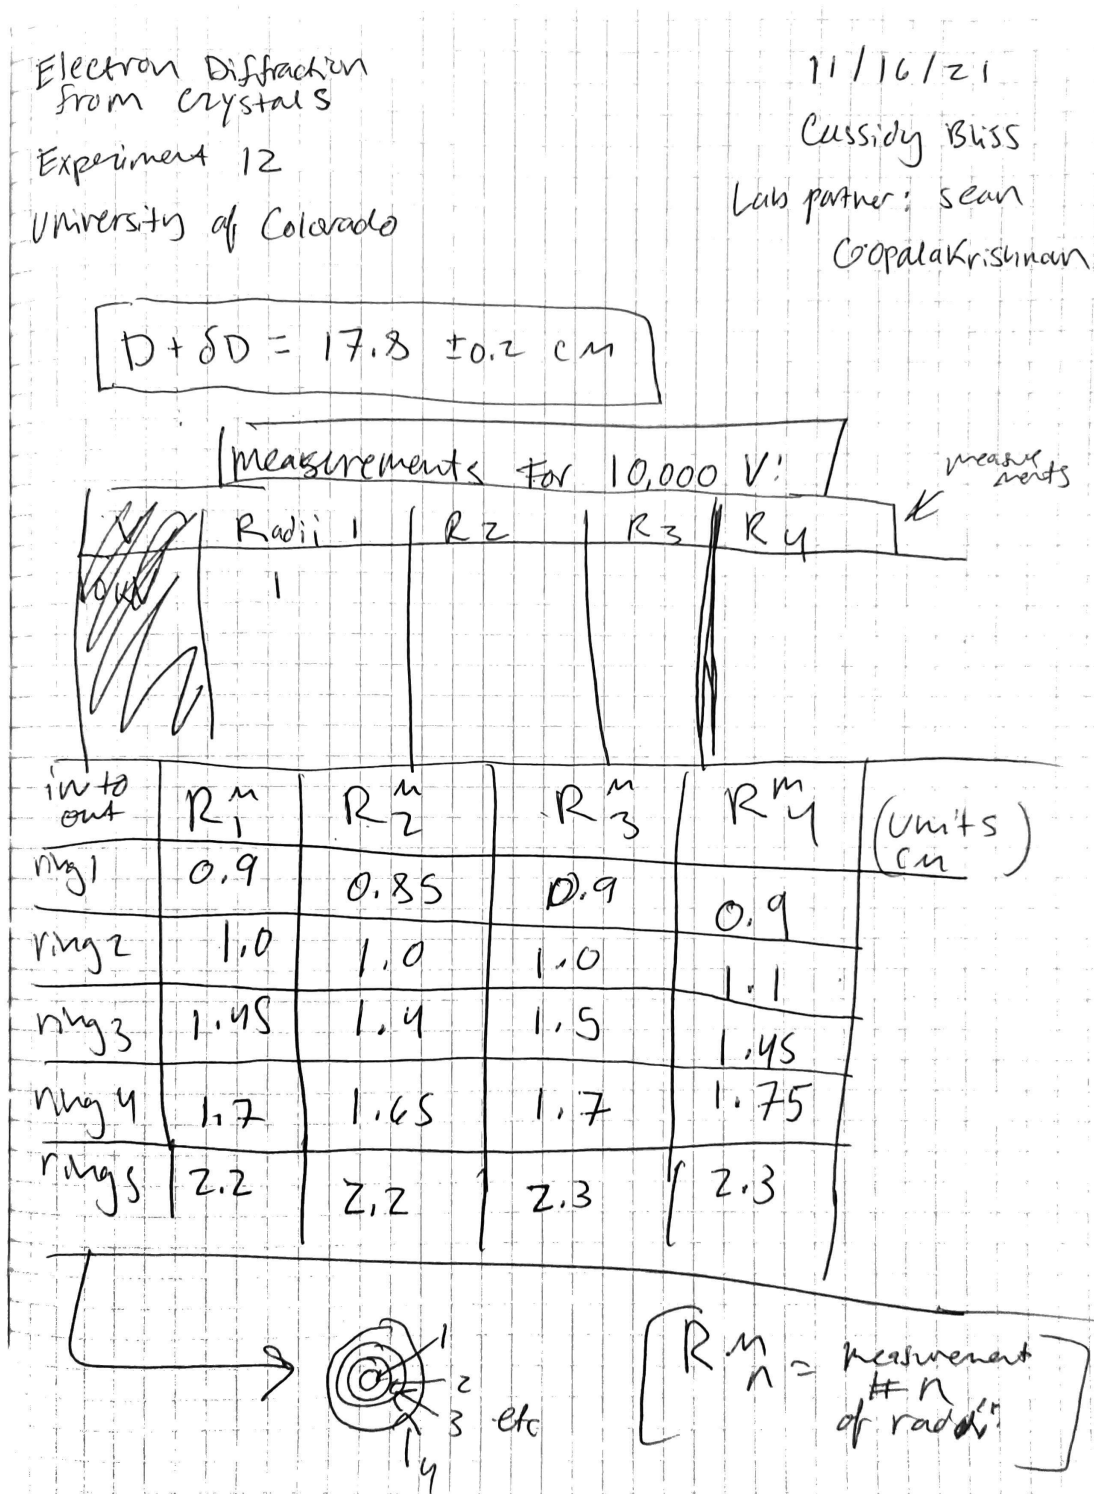 Electron Diffraction
from crystals
11/16/21
Experiment 12
Cassidy Bliss
University of Colorado
Lab partner: Sean
Gopalakrishnan
D + δD = 17.8 ±0.2 cm
measurements for 10,000 V:
measure
ments
V Radii 1 R2 R3 R4
1
in to
out R₁ᵐ R₂ᵐ R₃ᵐ R₄ᵐ (units
cm)
ring 1 0.9 0.85 0.9 0.9
ring 2 1.0 1.0 1.0 1.1
ring 3 1.45 1.4 1.5 1.45
ring 4 1.7 1.65 1.7 1.75
ring 5 2.2 2.2 2.3 2.3
1
2
3 etc
4
Rₙᵐ = measurement
# n
of radii